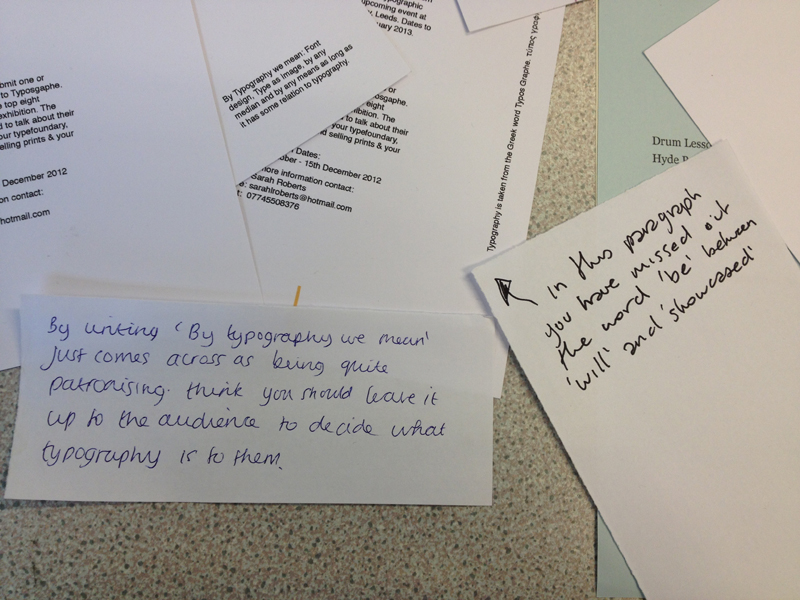 omit one or
to Typosgaphe.
e top eight
exhibition. The
d to talk about their
our typefoundary,
selling prints & your
December 2012
on contact:
hotmail.com
By Typography we mean: Font
design, Type as image, by any
median and by any means as long as
it has some relation to typography.
ypographic
upcoming event at
, Leeds. Dates to
uary 2013.
or
posgaphe.
eight
bition. The
to talk about their
your typefoundary,
d selling prints & your
Dates:
ber - 15th December 2012
more information contact:
Sarah Roberts
e: sarahlroberts@hotmail.com
t: 07745508376
Typography is taken from the Greek word Typos Graphe. τύπος γραφ
Drum Lesso
Hyde P
in this paragraph
you have missed out
the word 'be' between
'will' and 'showcased'
By writing 'By typography we mean'
Just comes across as being quite
patronising. think you should leave it
up to the audience to decide what
typography is to them.